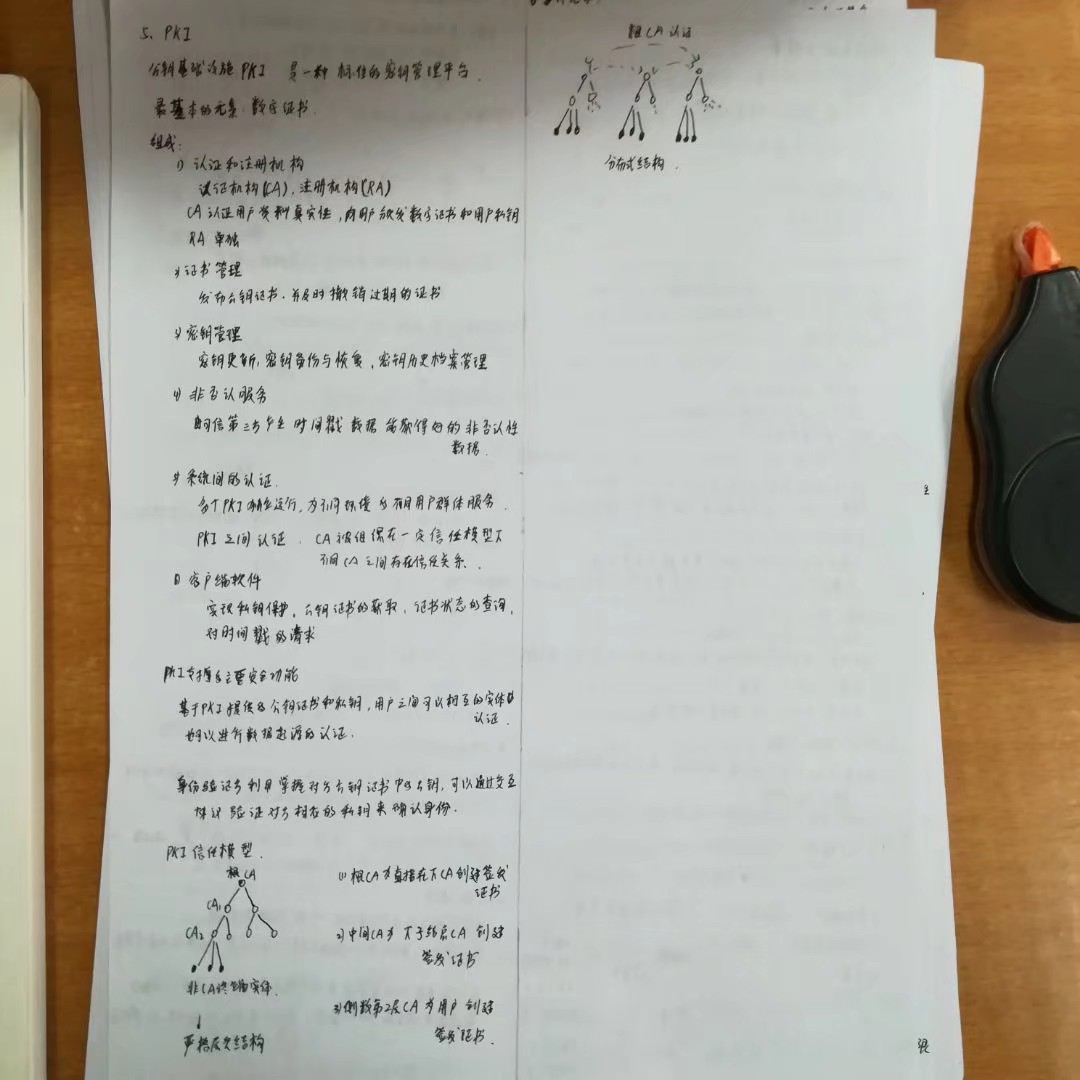 5、PKI
公钥基础设施 PKI 是一种标准的密钥管理平台.
最基本的元素:数字证书.
组成:
1) 认证和注册机构
认证机构(CA),注册机构(RA)
CA认证用户资料真实性,向用户颁发数字证书和用户私钥
RA 单独
2) 证书管理
发布公钥证书.并及时撤销过期的证书
3) 密钥管理
密钥更新,密钥备份与恢复,密钥历史档案管理
4) 非否认服务
可信第三方产生 时间戳 数据 能获得好的非否认性
数据.
5) 系统间的认证.
多个PKI独立运行,为不同环境 不同用户群体服务.
PKI之间认证. CA被组织在一定信任模型下
不同CA之间存在信任关系.
客户端软件
实现私钥保护,公钥证书的获取,证书状态的查询,
对时间戳的请求
PKI支撑的主要安全功能
基于PKI提供的公钥证书和私钥,用户之间可以相互的实体
认证.
也可以进行数据起源的认证.
身份验证方利用掌握对方公钥证书中的公钥,可以通过交互
协议验证对方相应的私钥来确认身份.
PKI信任模型.
根CA
CA1
CA2
非CA终端实体.
严格层次结构
(1) 根CA为直接在下CA创建签发
证书
2) 中间CA为 下子结点CA 创建
签发证书
3) 倒数第2层CA为用户 创建
签发证书.
根CA认证
分布式结构.